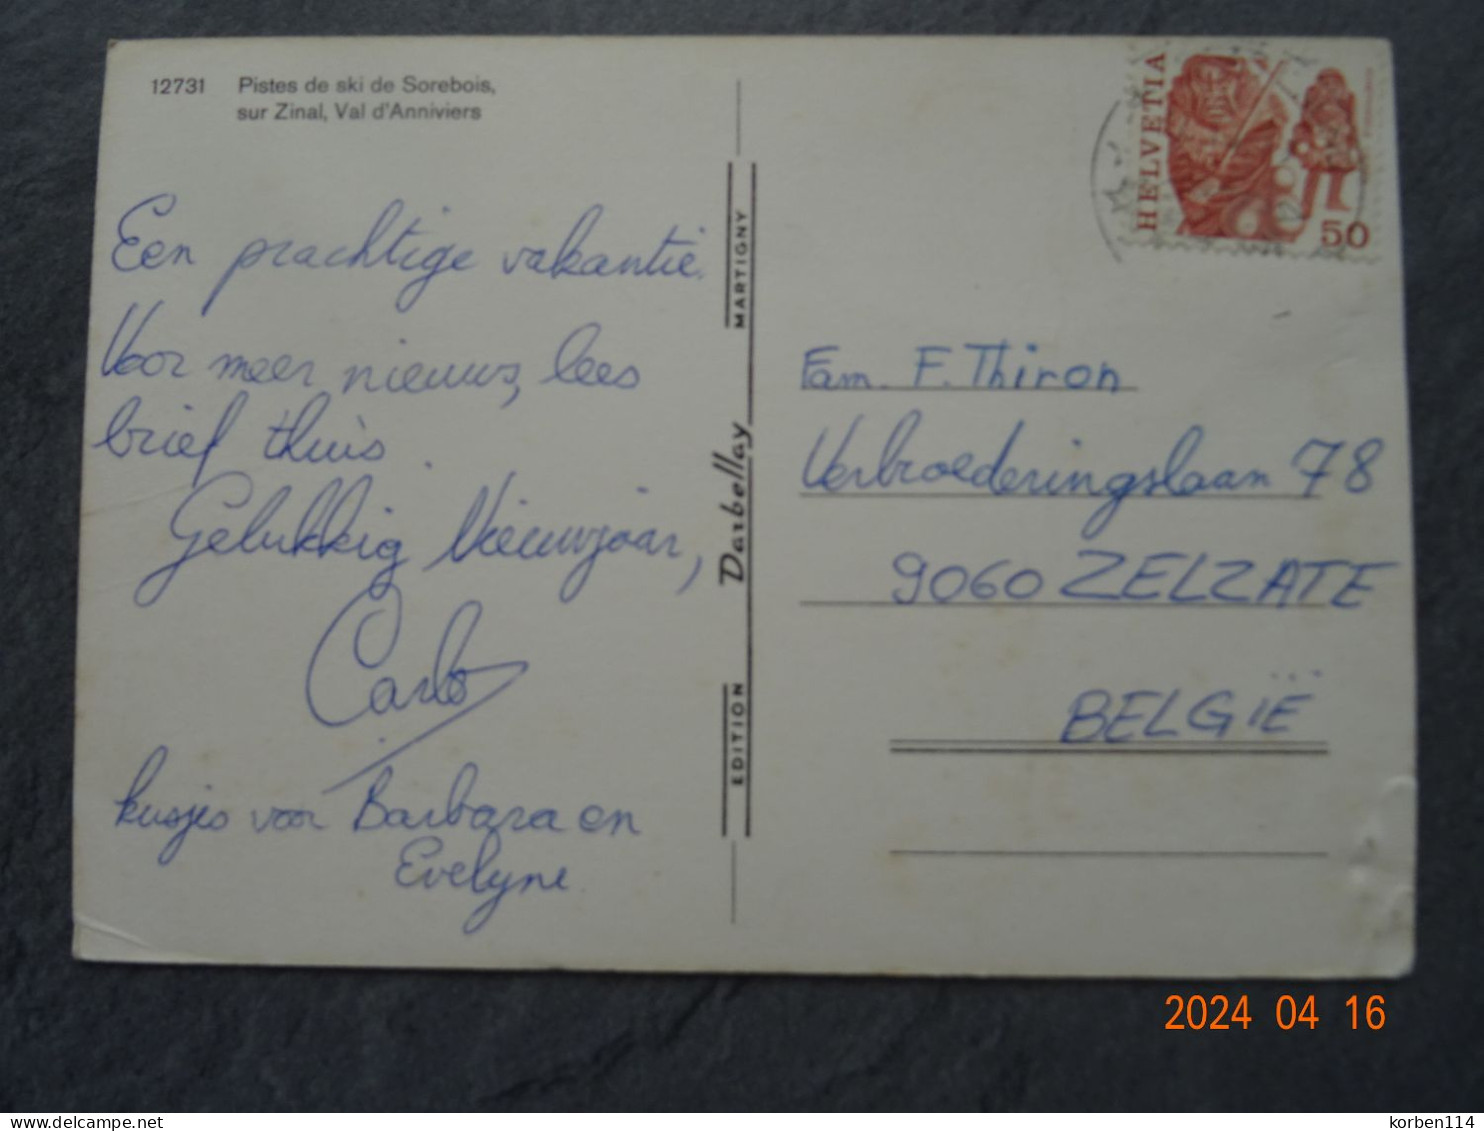 12731 Pistes de ski de Sorebois,
sur Zinal, Val d'Anniviers
Een prachtige vakantie.
Voor meer nieuws, lees
brief thuis.
Gelukkig Nieuwjaar,
Carlo
kusjes voor Barbara en
Evelyne
EDITION Darbellay MARTIGNY
HELVETIA
50
Fam. F. Thiron
Verbroederingslaan 78
9060 ZELZATE
BELGIË
2024 04 16
delcampe.net
korben114